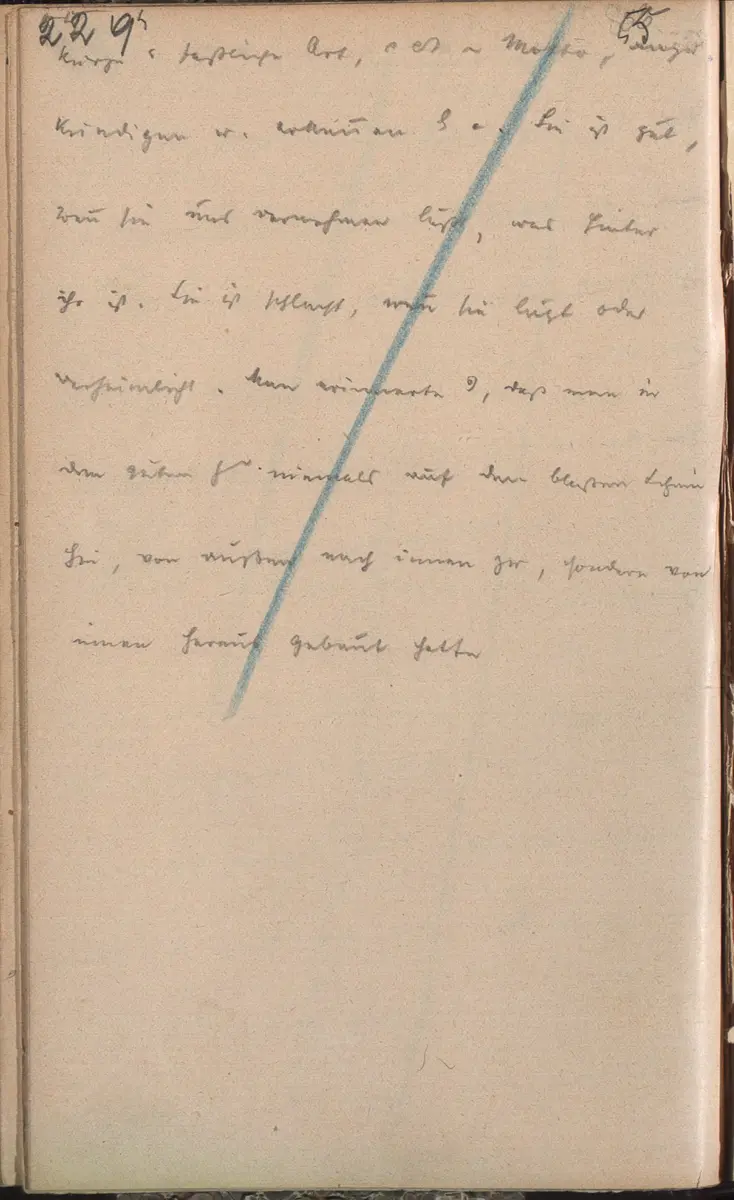 229
55
kurze faßliche Art, Motto,
kündigen u. erkennen Sie ist gut,
wenn sie uns vernehmen läßt, was hinter
ihr ist. Sie ist schlecht, wenn sie lügt oder
verheimlicht. Man erinnerte, daß man in
den guten niemals auf den bloßen Schein
hin, von außen nach innen zu, sondern von
innen heraus gebaut hatte